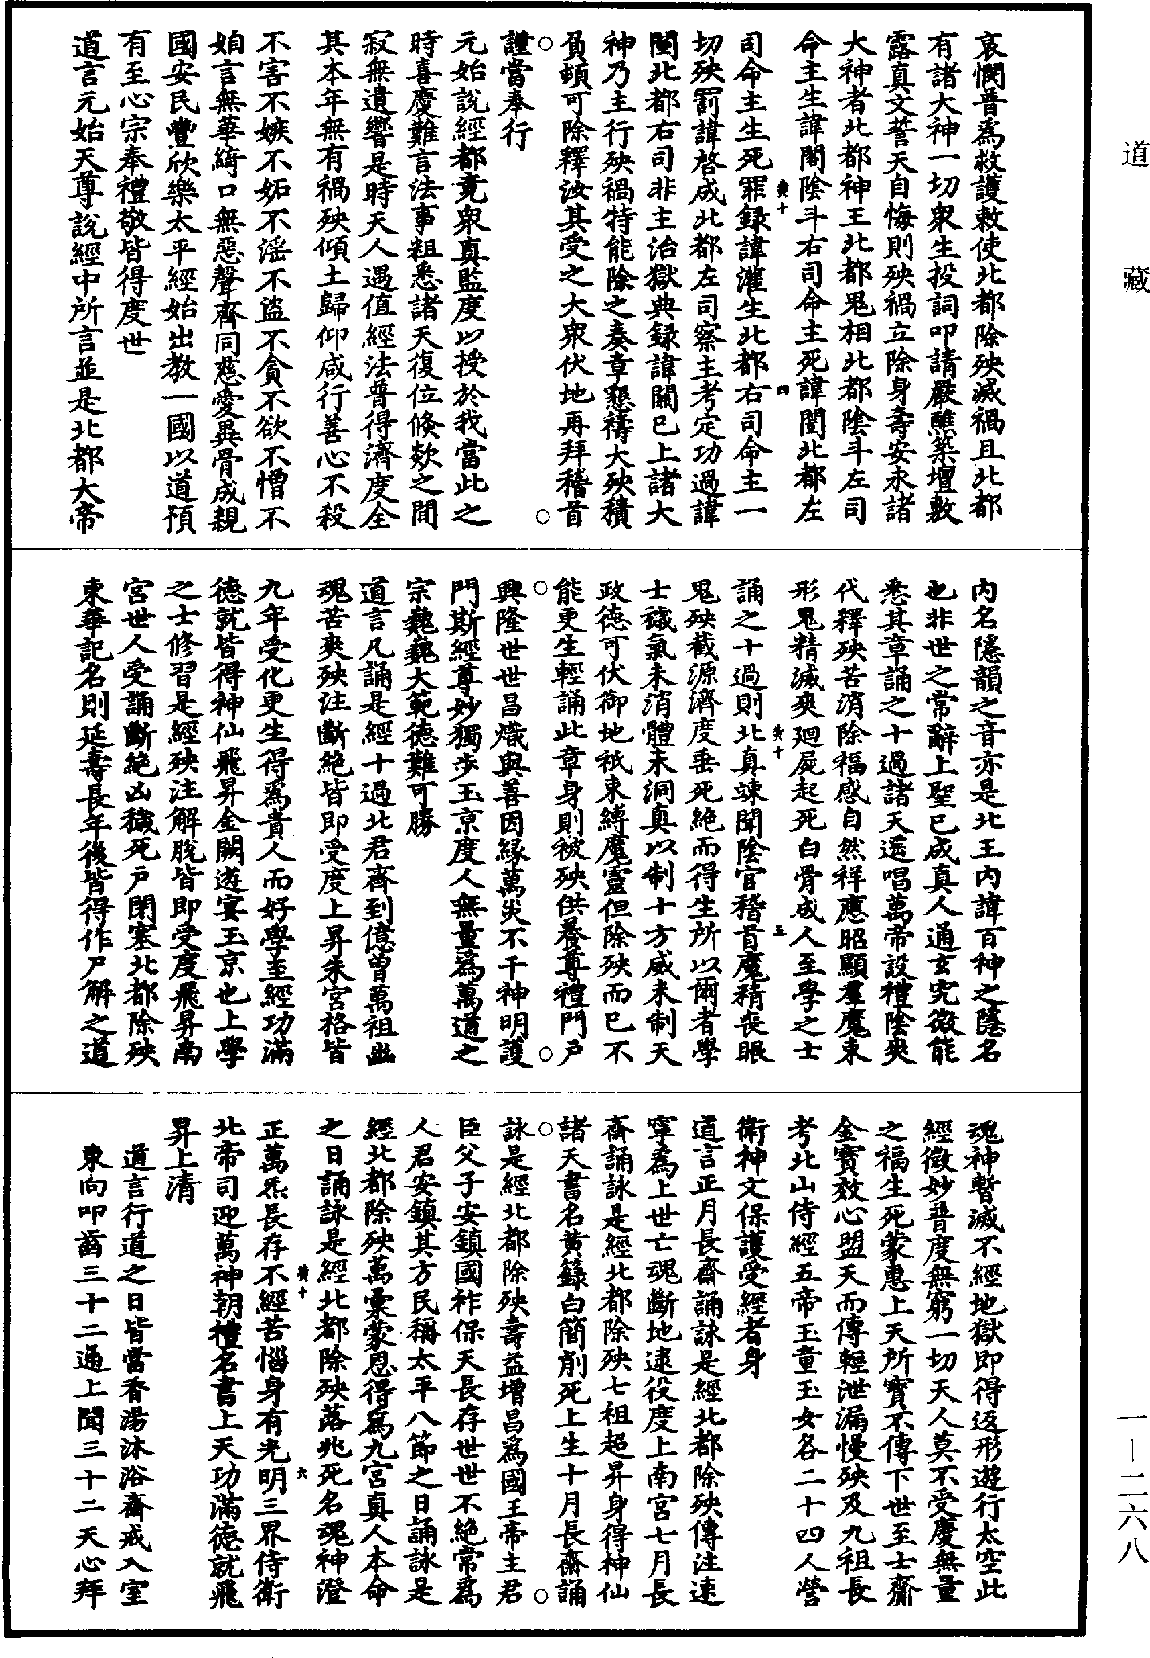 道藏
哀憫普為救護敕使北都除殃滅禍且北都
有諸大神一切衆生投詞叩請嚴醮築壇敷
露真文誓天自悔則殃禍立除身壽安永諸
大神者北都神王北都鬼相北都陰斗左司
命主生諱閣陰斗右司命主死諱閨北都左
司命主生死罪錄諱灌生北都右司命主一
切殃罰諱啓成北都左司察主考定功過諱
閩北都右司非主治獄典錄諱關已上諸大
神乃主行殃禍特能除之奏章懇禱大殃積
負頓可除釋汝其受之大衆伏地再拜稽首
謹當奉行
元始說經都竟衆真監度以授於我當此之
時喜慶難言法事粗悉諸天復位倏欻之間
寂無遺響是時天人遇值經法普得濟度全
其本年無有禍殃傾土歸仰咸行善心不殺
不害不嫉不妬不淫不盜不貪不欲不憎不
㛿言無華綺口無惡聲齊同慈愛異骨成親
國安民豐欣樂太平經始出教一國以道預
有至心宗奉禮敬皆得度世
道言元始天尊說經中所言並是北都大帝
内名隱韻之音亦是北王内諱百神之隱名
也非世之常辭上聖已成真人通玄究微能
悉其章誦之十過諸天遥唱萬帝設禮陰爽
代釋殃苦消除福感自然祥應昭顯羣魔束
形鬼精滅爽廻屍起死白骨成人至學之士
誦之十過則北真竦聞陰官稽首魔精喪眼
鬼殃截源濟度垂死絕而得生所以爾者學
士穢氣未消體未洞真以制十方威未制天
政德可伏御地祇束縛魔靈但除殃而已不
能更生輕誦此章身則被殃供養尊禮門戶
興隆世世昌熾與善因緣萬災不干神明護
門斯經尊妙獨步玉京度人無量為萬道之
宗巍巍大範德難可勝
道言凡誦是經十過北君齊到億曾萬祖幽
魂苦爽殃注斷絕皆即受度上昇朱宮格皆
九年受化更生得為貴人而好學至經功滿
德就皆得神仙飛昇金闕遊宴玉京也上學
之士修習是經殃注解脫皆即受度飛昇南
宮世人受誦斷絕凶穢死戶閉塞北都除殃
東華記名則延壽長年後皆得作尸解之道
魂神暫滅不經地獄即得返形遊行太空此
經微妙普度無窮一切天人莫不受慶無量
之福生死蒙惠上天所寶不傳下世至士齎
金寶效心盟天而傳輕泄漏慢殃及九祖長
考北山侍經五帝玉童玉女各二十四人營
衛神文保護受經者身
道言正月長齋誦詠是經北都除殃傳注速
寧為上世亡魂斷地逮役度上南宮七月長
齋誦詠是經北都除殃七祖超昇身得神仙
諸天書名黃籙白簡削死上生十月長齋誦
詠是經北都除殃壽益增昌為國王帝主君
臣父子安鎮國祚保天長存世世不絕常為
人君安鎮其方民稱太平八節之日誦詠是
經北都除殃萬稟蒙恩得為九宮真人本命
之日誦詠是經北都除殃落兆死名魂神澄
正萬炁長存不經苦惱身有光明三界侍衛
北帝司迎萬神朝禮名書上天功滿德就飛
昇上清
道言行道之日皆當香湯沐浴齋戒入室
東向叩齒三十二通上聞三十二天心拜
一—二六八